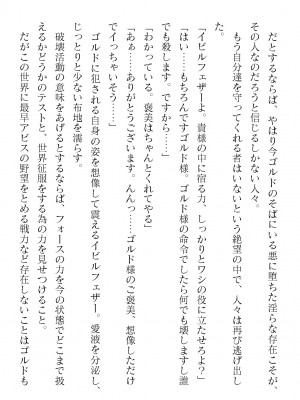 だとするならば、やはり今ゴルドのそばにいる悪に堕ちた淫らな存在こそが、
その人なのだろうと信じるしかない人々。
もう自分達を守ってくれる者はいないという絶望の中で、人々は再び逃げ出し
た。
「イビルフェザーよ。貴様の中に宿る力、しっかりとワシの役に立たせろよ？」
「はい……もちろんですゴルド様。ゴルド様の命令でしたら何でも壊しますし誰
でも殺します。ですから」
「わかっている。褒美はちゃんとくれてやる」
「あぁ……ありがとうございます。んんっ……ゴルド様のご褒美、想像しただけ
でイっちゃいそう……」
ゴルドに犯される自身の姿を想像して震えるイビルフェザー。愛液を分泌し、
じっとりと少ない布地を濡らす。
破壊活動の意味をあげるとするならば、フォースの力を今の状態でどこまで扱
えるかどうかのテストと、世界征服をする為の力を見せつけること。
だがこの世界に最早アビスの野望をとめる戦力など存在しないことはゴルドも